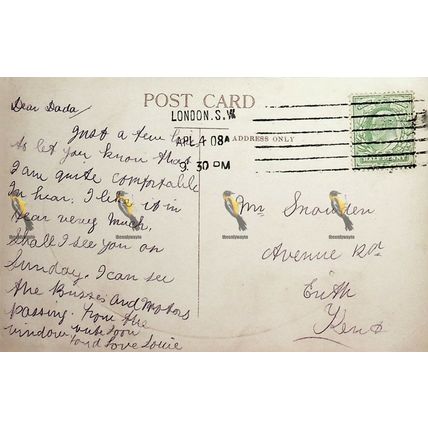 Dear Dada
Just a few lines
to let you know that
I am quite comfortable
In hear. I like it in
hear very much,
Shall I see you on
Sunday. I can see
the Busses and motors
passing. From the
window write soon
and love Louie
POST CARD
ADDRESS ONLY
LONDON. S.W.
AP 4 08A
9. 30 PM
Mr Snowden
Avenue Rd.
Erith
Kent
theonlywayto
theonlywayto
theonlywayto
theonlywayto